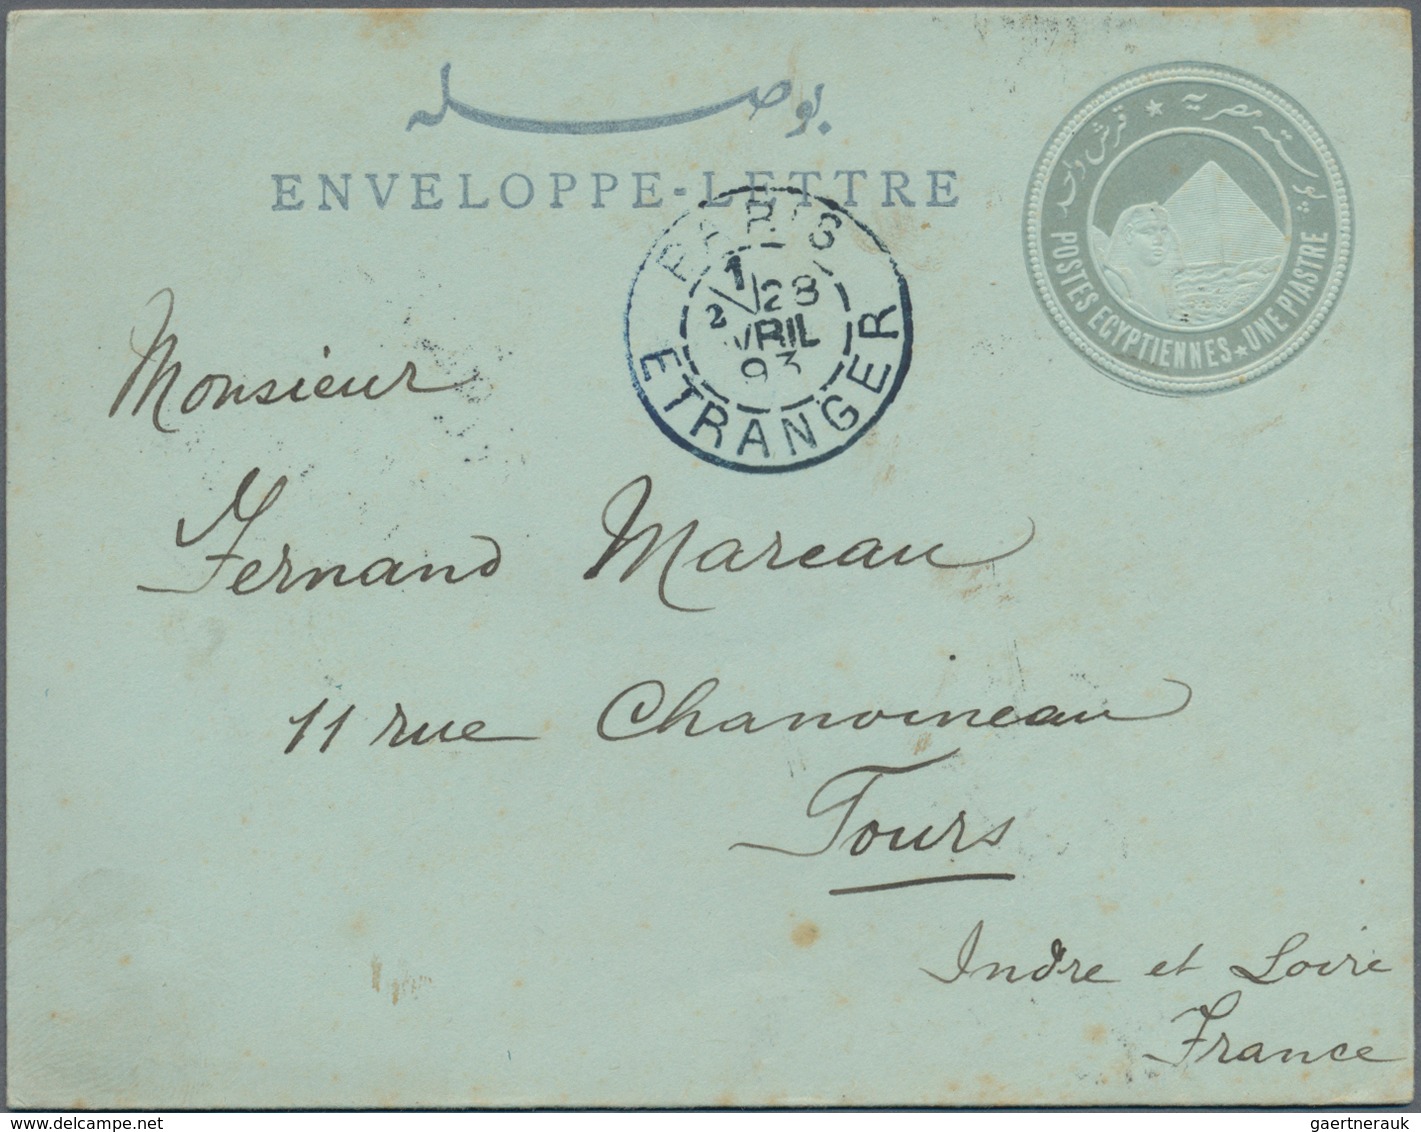 بوصله
ENVELOPPE-LETTRE
بوسته مصرية ★ قرش واحد
POSTES EGYPTIENNES ★ UNE PIASTRE
PARIS
1
2 28
VRIL
93
ETRANGER
Monsieur
Fernand Mareau
11 rue Chanoineau
Tours
Indre et Loire
France
gaertnerauk